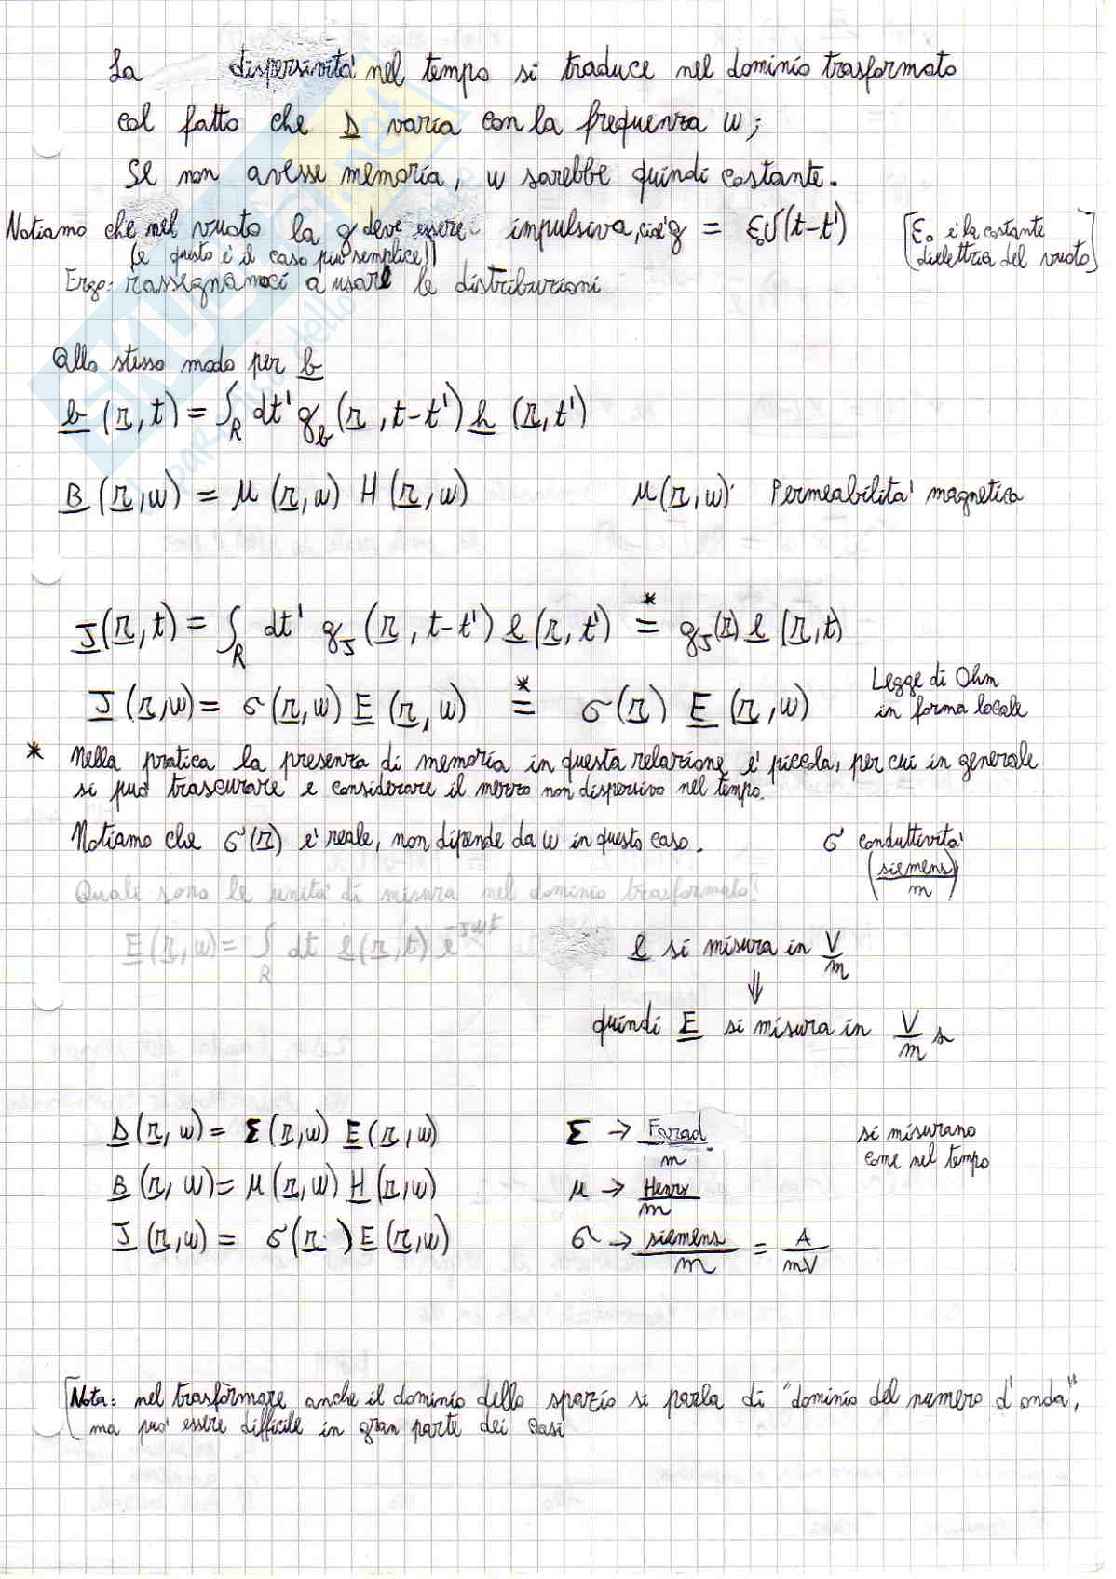 La dispersività nel tempo si traduce nel dominio trasformato
col fatto che D varia con la frequenza ω;
Se non avesse memoria, ω sarebbe quindi costante.
Notiamo che nel vuoto la g deve essere impulsiva, cioè g = ε₀δ(t-t') [ε₀ è la costante
(e questo è il caso più semplice!) dielettrica del vuoto]
Ergo: rassegnamoci a usare le distribuzioni
Allo stesso modo per b
b (r,t) = ∫_R dt' g_b (r, t-t') h (r,t')
B (r,ω) = μ (r,ω) H (r,ω) μ(r,ω): Permeabilità magnetica
J(r,t) = ∫_R dt' g_J (r, t-t') e (r,t') =* g_J(r) e (r,t)
J (r,ω) = σ(r,ω) E (r,ω) =* σ(r) E (r,ω) Legge di Ohm
in forma locale
* Nella pratica la presenza di memoria in questa relazione è piccola, per cui in generale
si può trascurare e considerare il mezzo non dispersivo nel tempo.
Notiamo che σ(r) è reale, non dipende da ω in questo caso. σ conduttività
(siemens/m)
Quali sono le unità di misura nel dominio trasformato?
E(r,ω) = ∫_R dt e(r,t) e^-jωt e si misura in V/m
⇓
quindi E si misura in V/m s
D(r,ω) = Σ(r,ω) E(r,ω) Σ → Farad/m si misurano
come nel tempo
B (r,ω) = μ(r,ω) H(r,ω) μ → Henry/m
J (r,ω) = σ(r) E(r,ω) σ → siemens/m = A/mV
[Nota: nel trasformare anche il dominio dello spazio si parla di "dominio del numero d'onda",
ma può essere difficile in gran parte dei casi